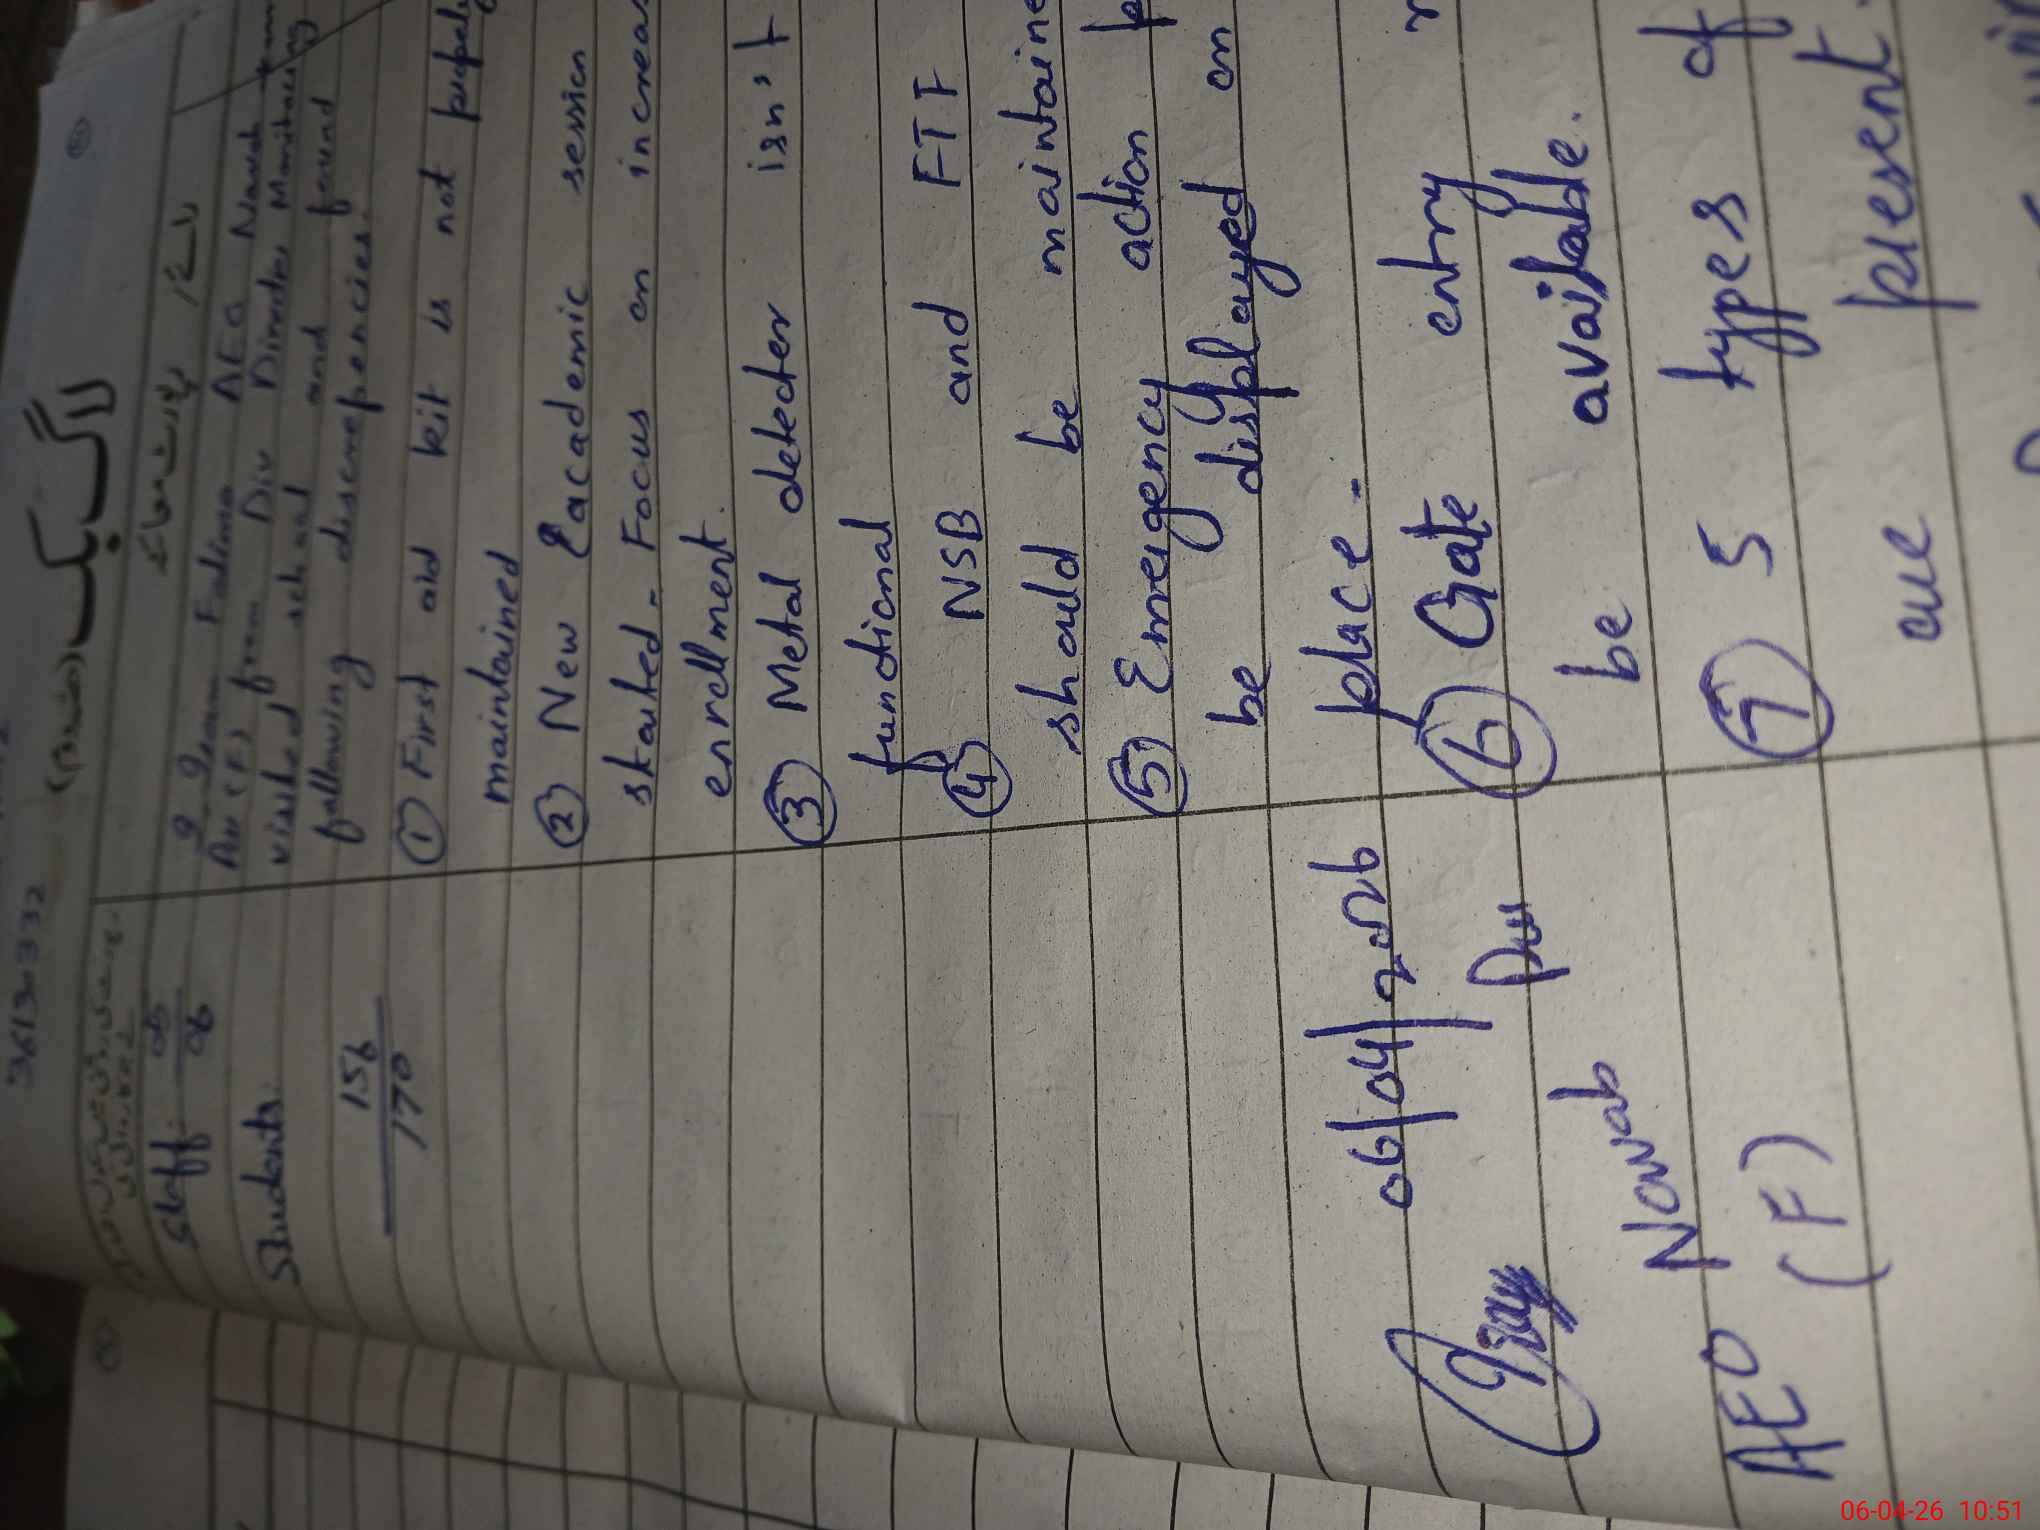 36130332
لاگ بک (حصہ دوم)
Staff: 05
06
Students
156
170
06/04/2026
Nawab Pur
AEO (F)
I, Iram Fatima AEO Nawab
Pur (F) from Div Director Monitoring
visited school and found
following discrepencies.
① First aid kit is not properly
maintained
② New academic session
started. Focus on increas
enrollment.
③ Metal detector isn't
functional
④ NSB and FTF
should be maintaine
⑤ Emergency action p
be displayed on
place.
⑥ Gate entry r
be available.
⑦ 5 types of
are present.
06-04-26 10:51